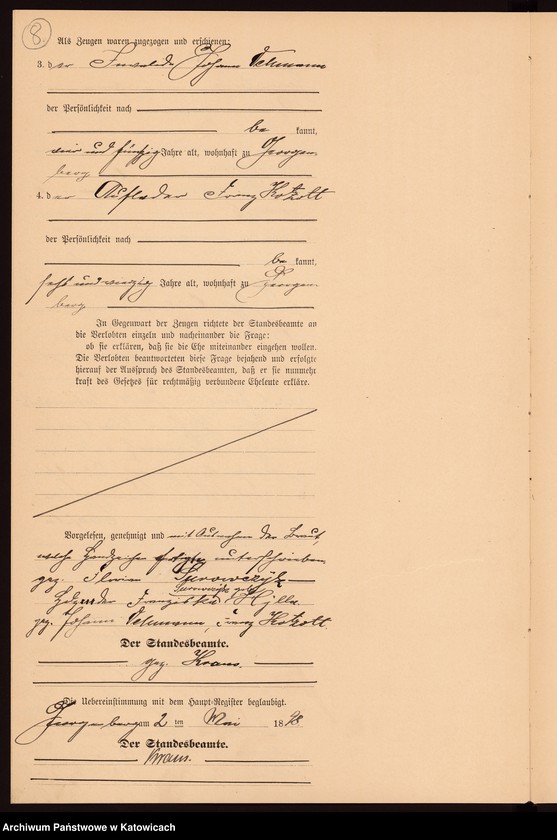 8.
Als Zeugen waren zugezogen und erschienen:
3. der Invalide Johann
der Persönlichkeit nach
be kannt,
vier und fünfzig Jahre alt, wohnhaft zu Georgen-
berg
4. der Aufseher Franz Kotzott
der Persönlichkeit nach
be kannt,
sechs und vierzig Jahre alt, wohnhaft zu Georgen-
berg
In Gegenwart der Zeugen richtete der Standesbeamte an
die Verlobten einzeln und nacheinander die Frage:
ob sie erklären, daß sie die Ehe miteinander eingehen wollen.
Die Verlobten beantworteten diese Frage bejahend und erfolgte
hierauf der Ausspruch des Standesbeamten, daß er sie nunmehr
kraft des Gesetzes für rechtmäßig verbundene Eheleute erkläre.
Vorgelesen, genehmigt und mit Ausnahme der Braut,
welche Handzeichen unterschrieben
gez. Florian
Franziska Hylla
gez. Johann Franz Kotzott.
Der Standesbeamte.
gez. Kraus.
Die Uebereinstimmung mit dem Haupt-Register beglaubigt.
Georgenberg am 2 ten Mai 1898.
Der Standesbeamte.
Kraus.
Archiwum Państwowe w Katowicach